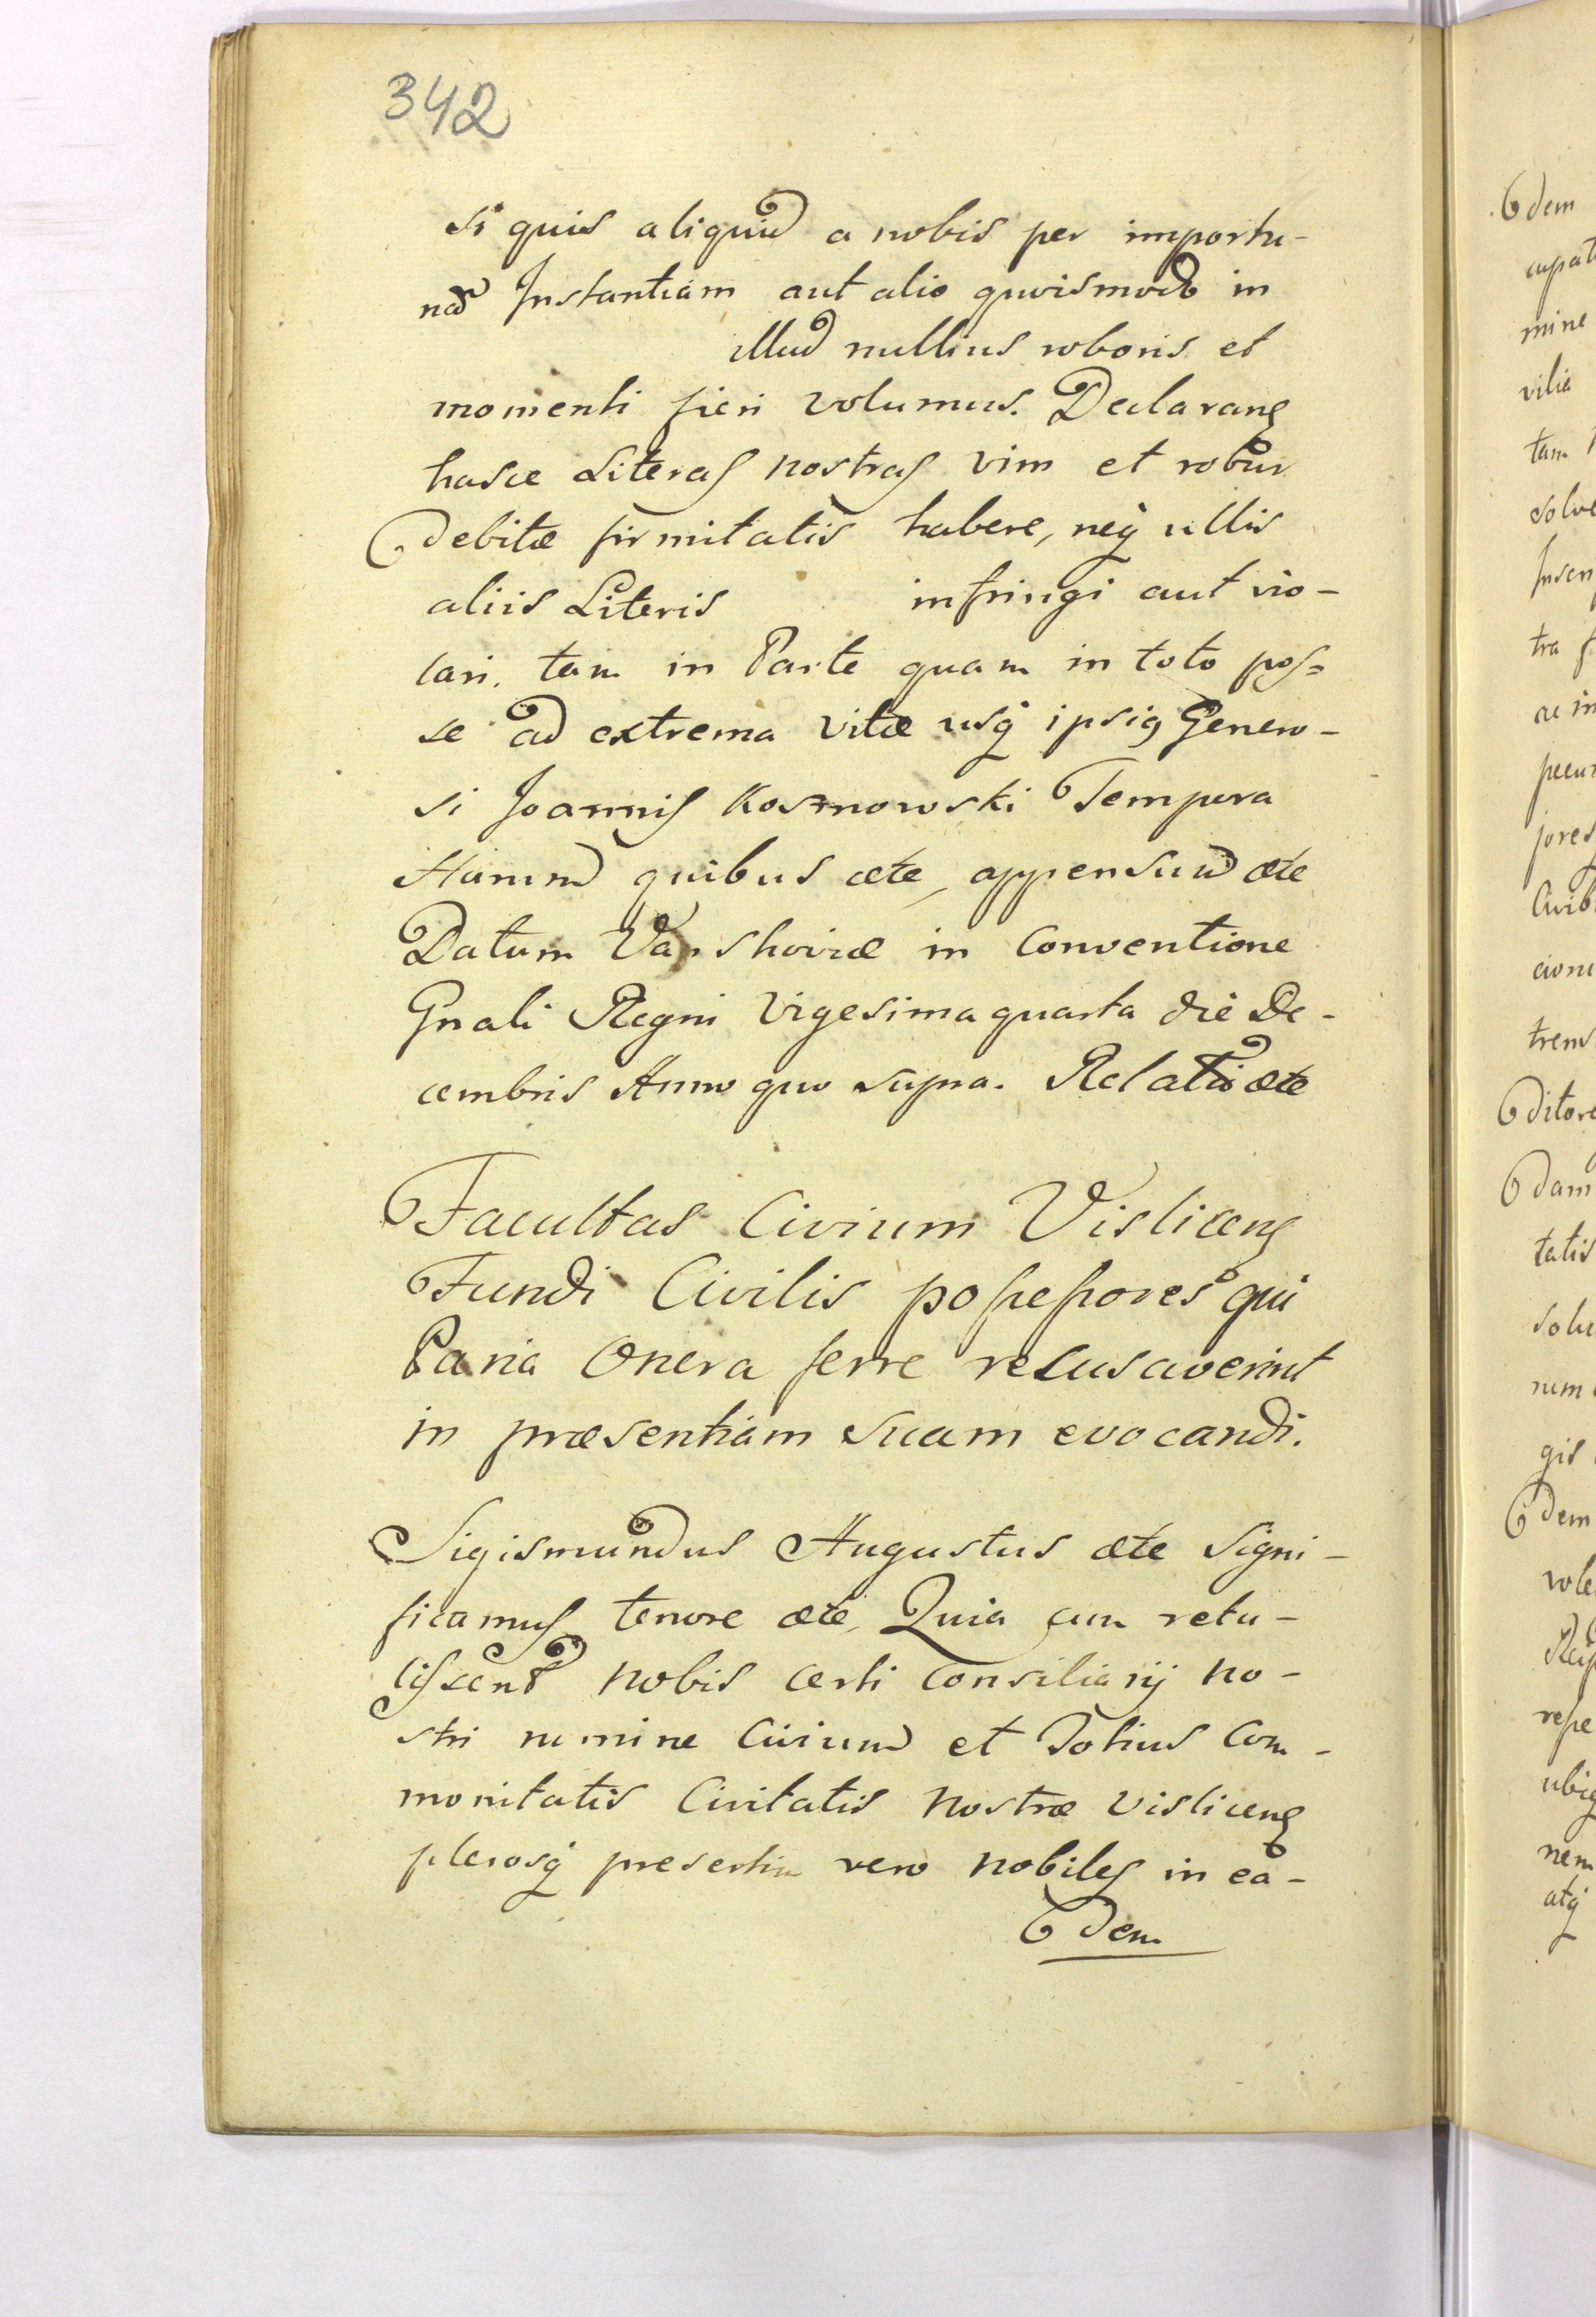 342
si quis aliquid a nobis per importu-
nã Instantiam aut alio quovismodo in
illud nullius roboris et
momenti fieri volumus. Declarang
hasce Literas nostras vim et robur
debitæ firmitatis habere, neq ullis
aliis Literis infringi aut vio-
lari, tam in Parte quam in toto pos=
se ad extrema vitæ usq ipsig Genero-
si Joannis Kosmowski Tempora
Harum quibus æte, appensum æte
Datum Varshoviæ in Conventione
Gnali Regni Vigesima quarta die De-
cembris Anno quo supra. Relatio æte
Facultas Civium Visliceng
Fundi Civilis possessores qui
Paria Onera ferre recusaverint
in præsentiam suam evocandi.
Sigismundus Augustus æte Signi-
ficamus tenore æte, Quia cum retu-
lissent nobis certi Consiliarij no-
stri nomine Civium et Totius Com-
monitatis Civitatis Nostræ Visliceng
plerosq presertim vero nobiles in ea-
dem
dem
mine
vilia
tam
solve
tra
jores
Civib
tatis
gis
dem
nem
atq